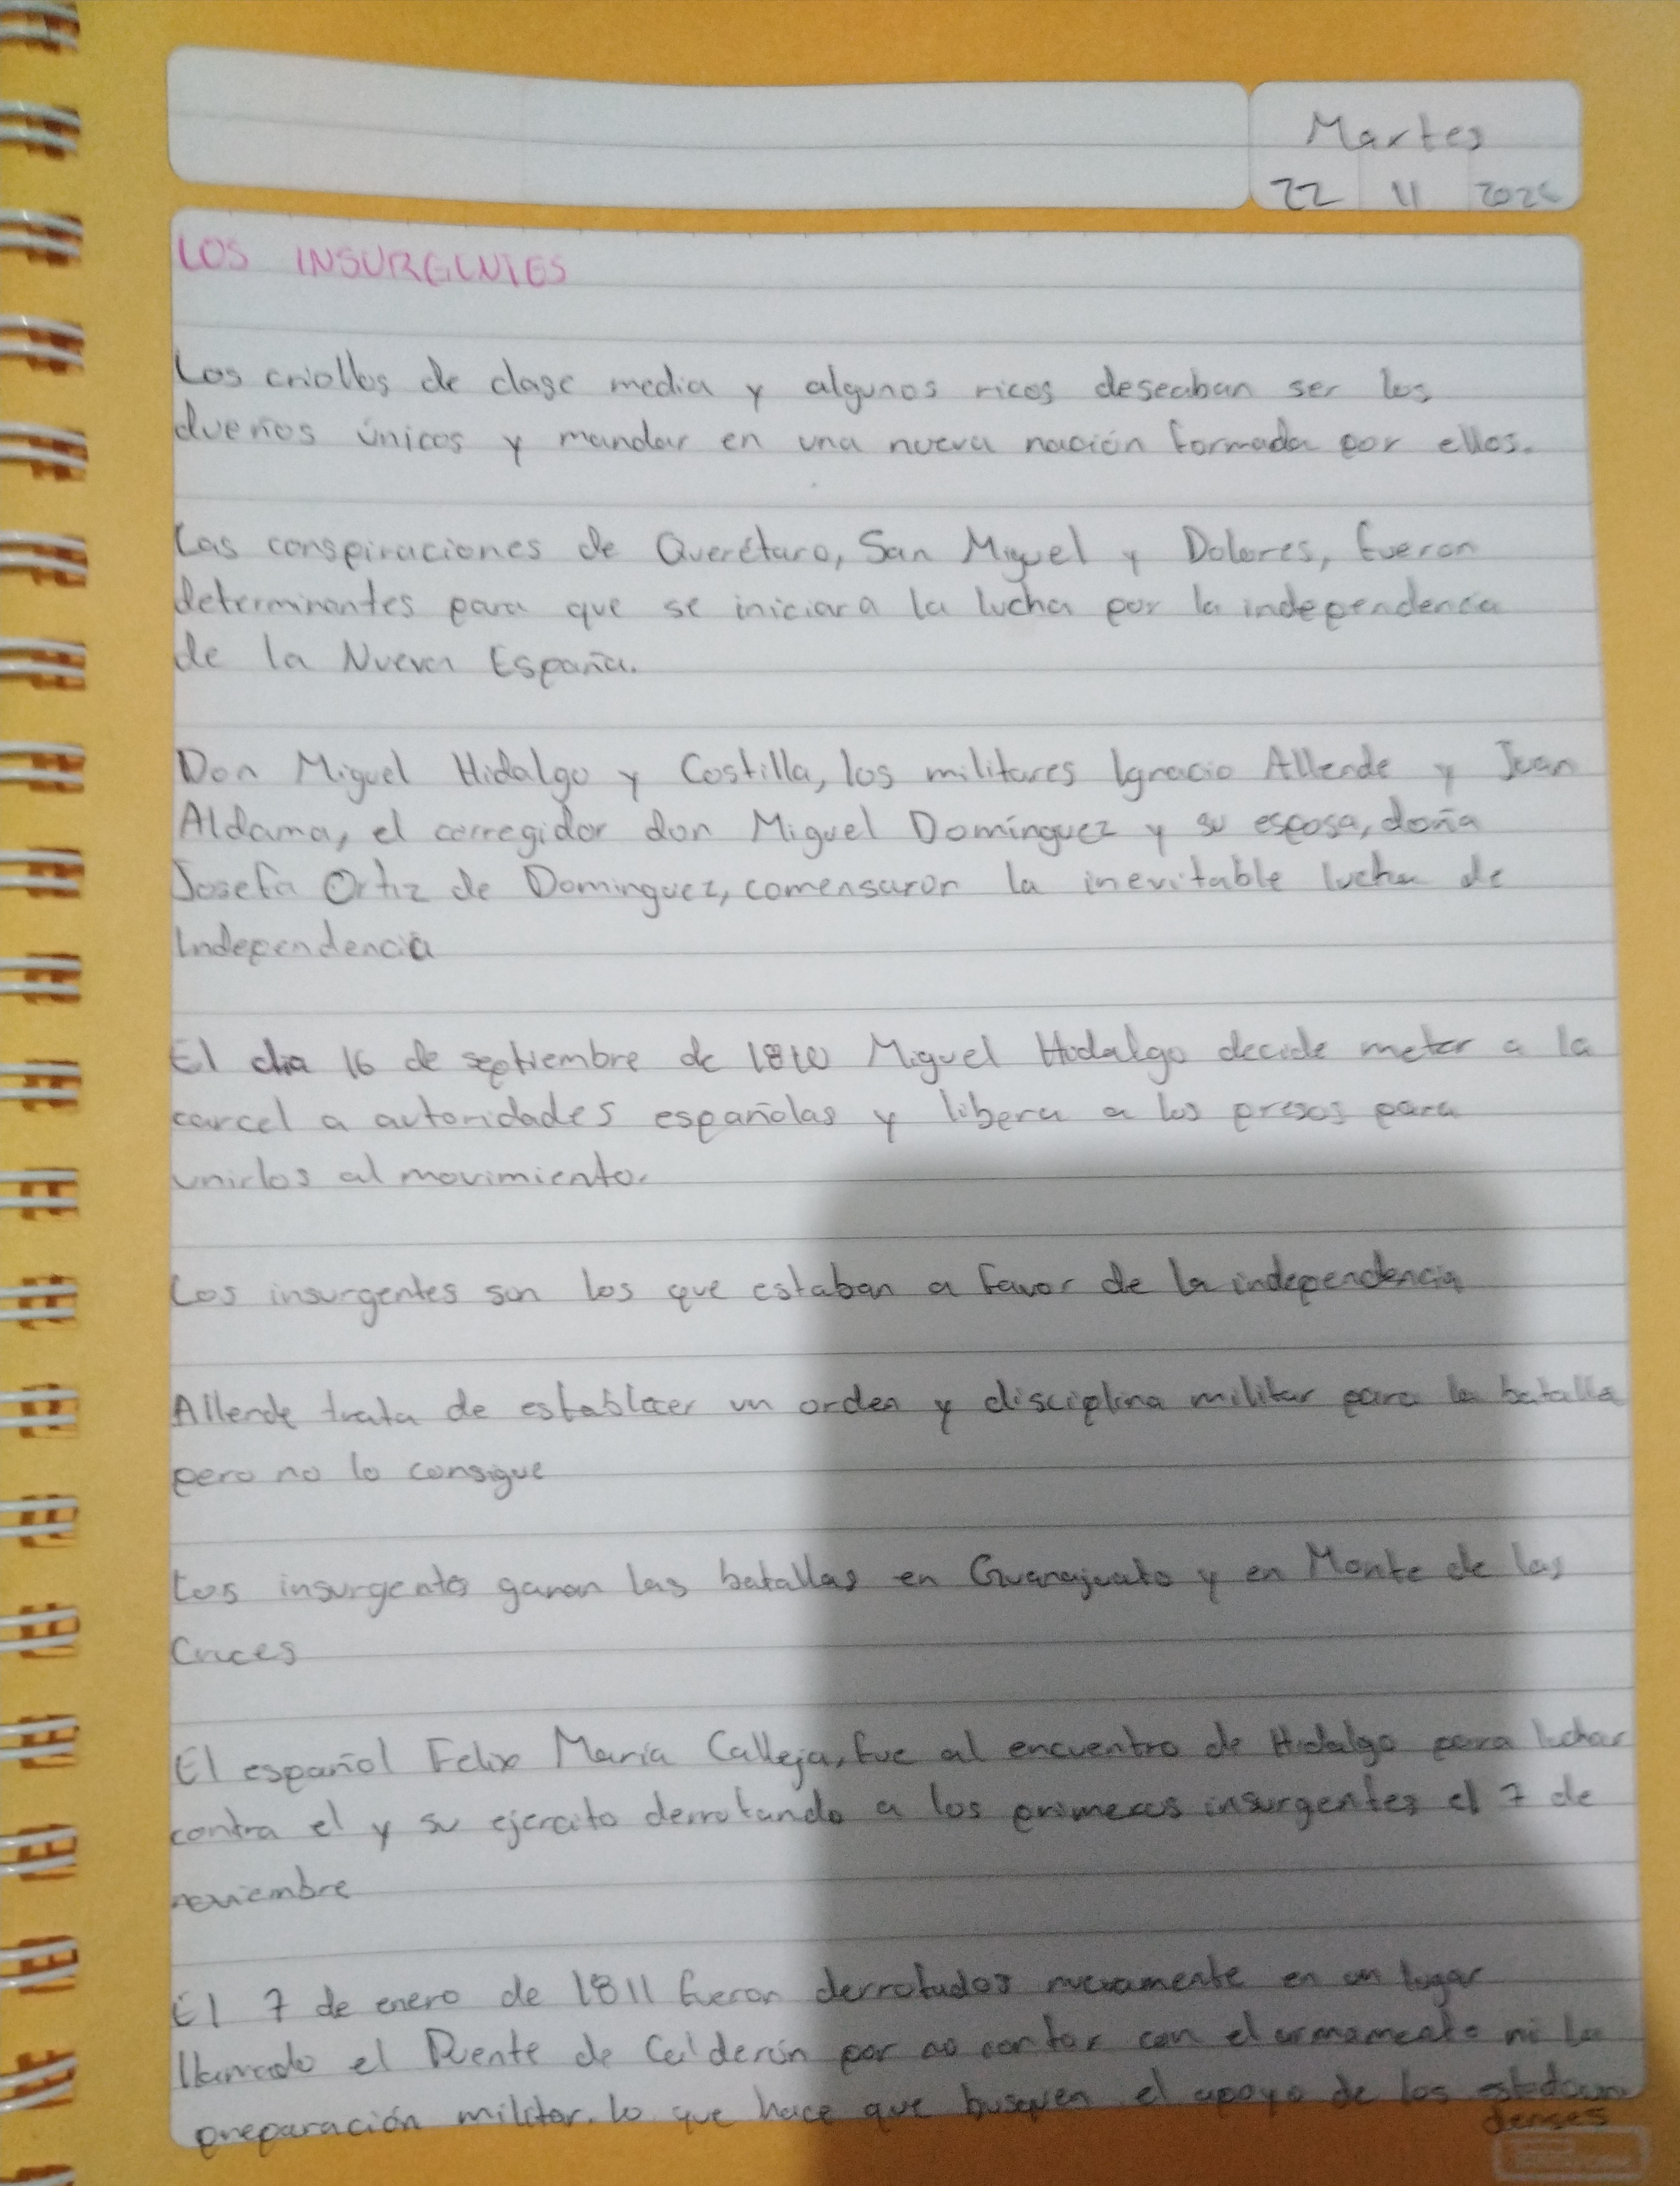 Martes
22 11
LOS INSURGENTES
Los criollos de clase media y algunos ricos deseaban ser los
dueños únicos y mandar en una nueva nación formada por ellos.
Las conspiraciones de Querétaro, San Miguel y Dolores, fueron
determinantes para que se iniciara la lucha por la independencia
de la Nueva España.
Don Miguel Hidalgo y Costilla, los militares Ignacio Allende y Juan
Aldama, el corregidor don Miguel Domínguez y su esposa, doña
Josefa Ortiz de Dominguez, comensaron la inevitable lucha de
Independencia
El dia 16 de septiembre de 1810 Miguel Hidalgo decide meter a la
carcel a autoridades españolas y libera a los presos para
unirlos al movimiento.
Los insurgentes son los que estaban a favor de la independencia
Allende trata de establecer un orden y disciplina militar para la batalla
pero no lo consigue
Los insurgentes ganan las batallas en Guanajuato y en Monte de las
Cruces
El español Felix María Calleja, fue al encuentro de Hidalgo para luchar
contra el y su ejercito derrotando a los primeros insurgentes el 7 de
noviembre
El 7 de enero de 1811 fueron derrotados nuevamente en un lugar
llamado el Puente de Calderón por no contar con el armamento ni la
preparación militar. lo que hace que busquen el apoyo de los estadouni
denses